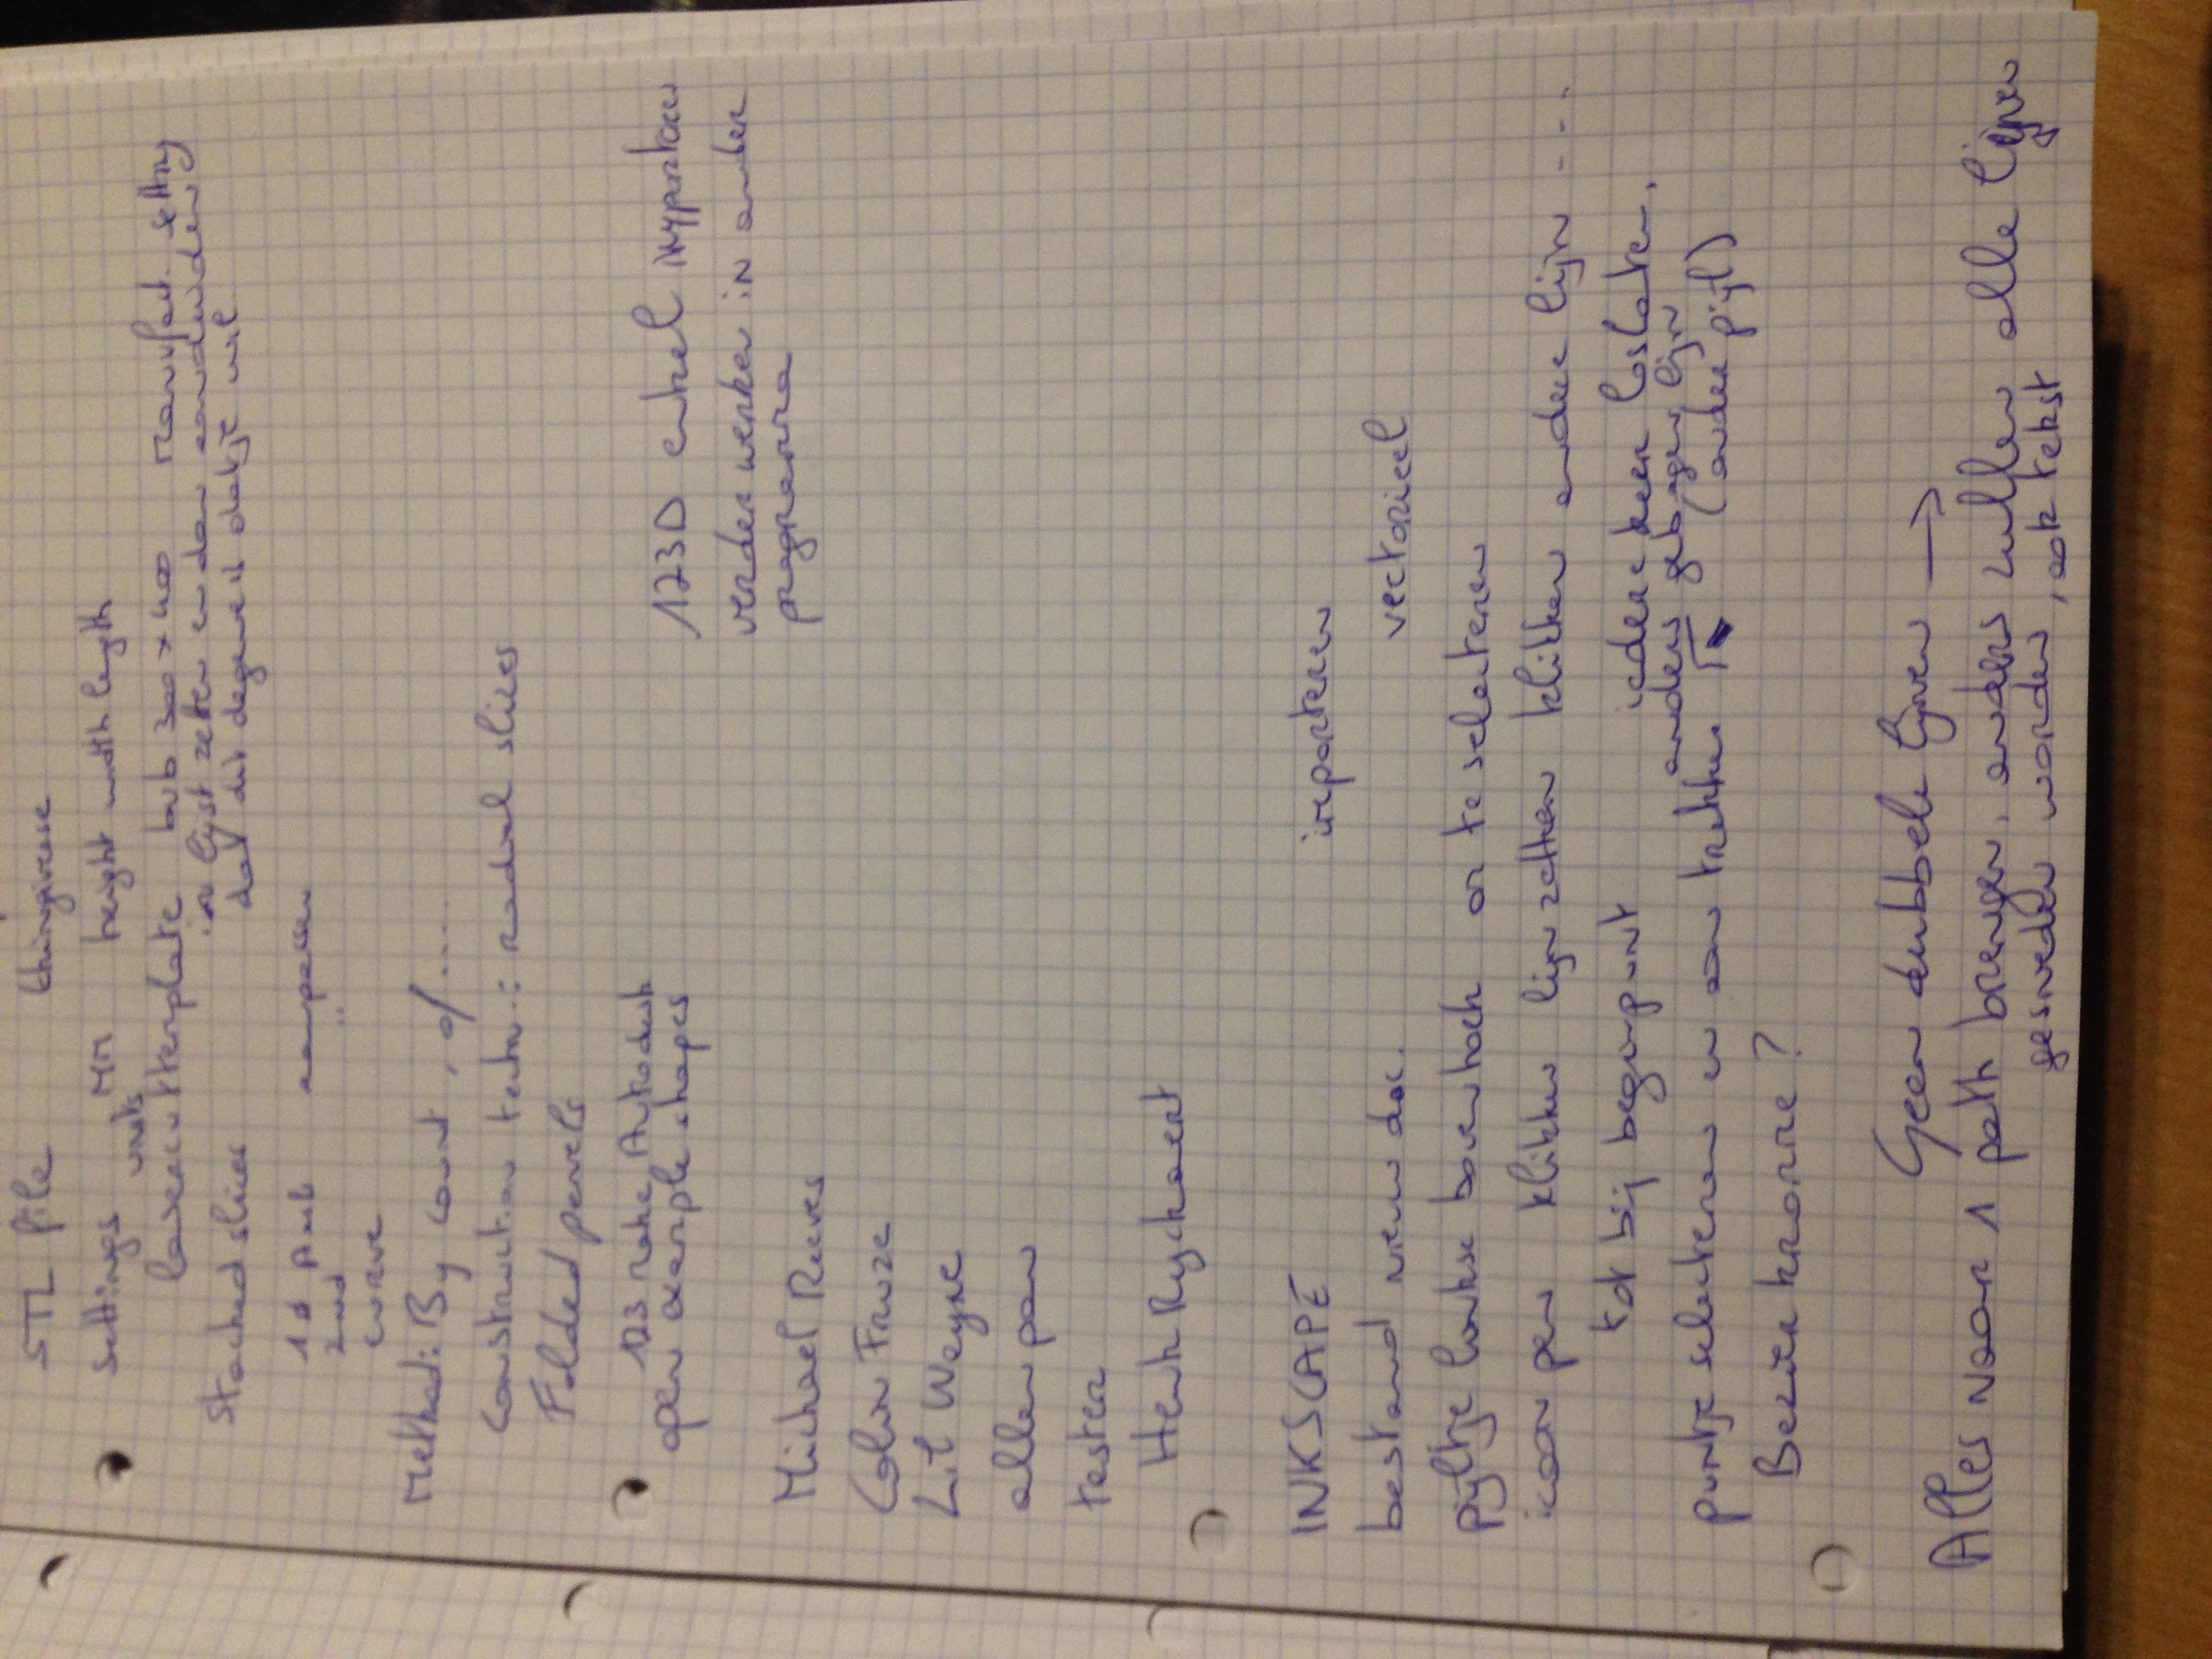 STL file thingiverse
settings units MM height width length
lasercuttemplate bvb 300 x 400 Manufact. setting
in lijst zetten en dan aanduiden
Stacked slices dat dit degene is dat je wil
1st aanpassen
2nd "
curve
Method: By count, of .....
Construction techn.: radial slices
Folded panels
123 make Autodesk
open example shapes
123D enkel importeren
verder werken in ander
programma
Michael Reeves
Colin Fruze
Lil Wayne
allen pan
tester
Henk Ryckaert
INKSCAPE importeren
bestand nieuw doc. vectorieel
pijltje linkse bovenhoek om te selecteren
icoon pen klikken lijn zetten klikken andere lijn ....
tot bij beginpunt iedere keer loslaten,
anders gebogen lijn
puntje selecteren en aan trekken (ander pijl)
Bezier kromme?
Geen dubbele lijnen →
Alles naar 1 path brengen, anders zullen alle lijnen
gesneden worden, ook tekst